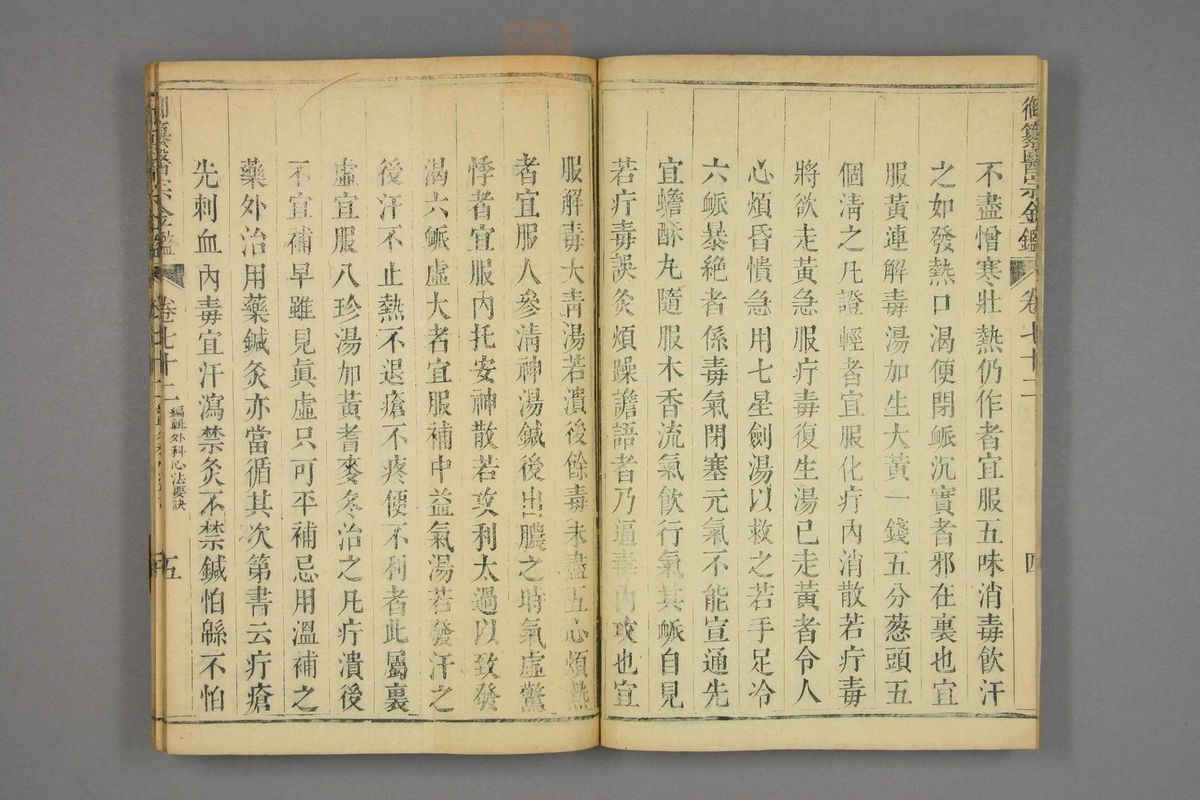 御纂醫宗金鑑 卷七十二 四
不盡憎寒壯熱仍作者宜服五味消毒飲汗
之如發熱口渴便閉脈沉實者邪在裏也宜
服黃連解毒湯加生大黃一錢五分葱頭五
個淸之凡證輕者宜服化疔內消散若疔毒
將欲走黃急服疔毒復生湯已走黃者令人
心煩昏憒急用七星劍湯以救之若手足冷
六脈暴絶者係毒氣閉塞元氣不能宣通先
宜蟾酥丸隨服木香流氣飲行氣其脈自見
若疔毒誤灸煩躁譫語者乃逼毒內攻也宜
服解毒大靑湯若潰後餘毒未盡五心煩熱
者宜服人參淸神湯鍼後出膿之時氣虛驚
悸者宜服內托安神散若攻利太過以致發
渴六脈虛大者宜服補中益氣湯若發汗之
後汗不止熱不退瘡不疼便不利者此屬裏
虛宜服八珍湯加黃耆麥冬治之凡疔潰後
不宜補早雖見眞虛只可平補忌用溫補之
藥外治用藥鍼灸亦當循其次第書云疔瘡
先刺血內毒宜汗瀉禁灸不禁鍼怕綿不怕
御纂醫宗金鑑 卷七十二 編輯外科心法要訣 五